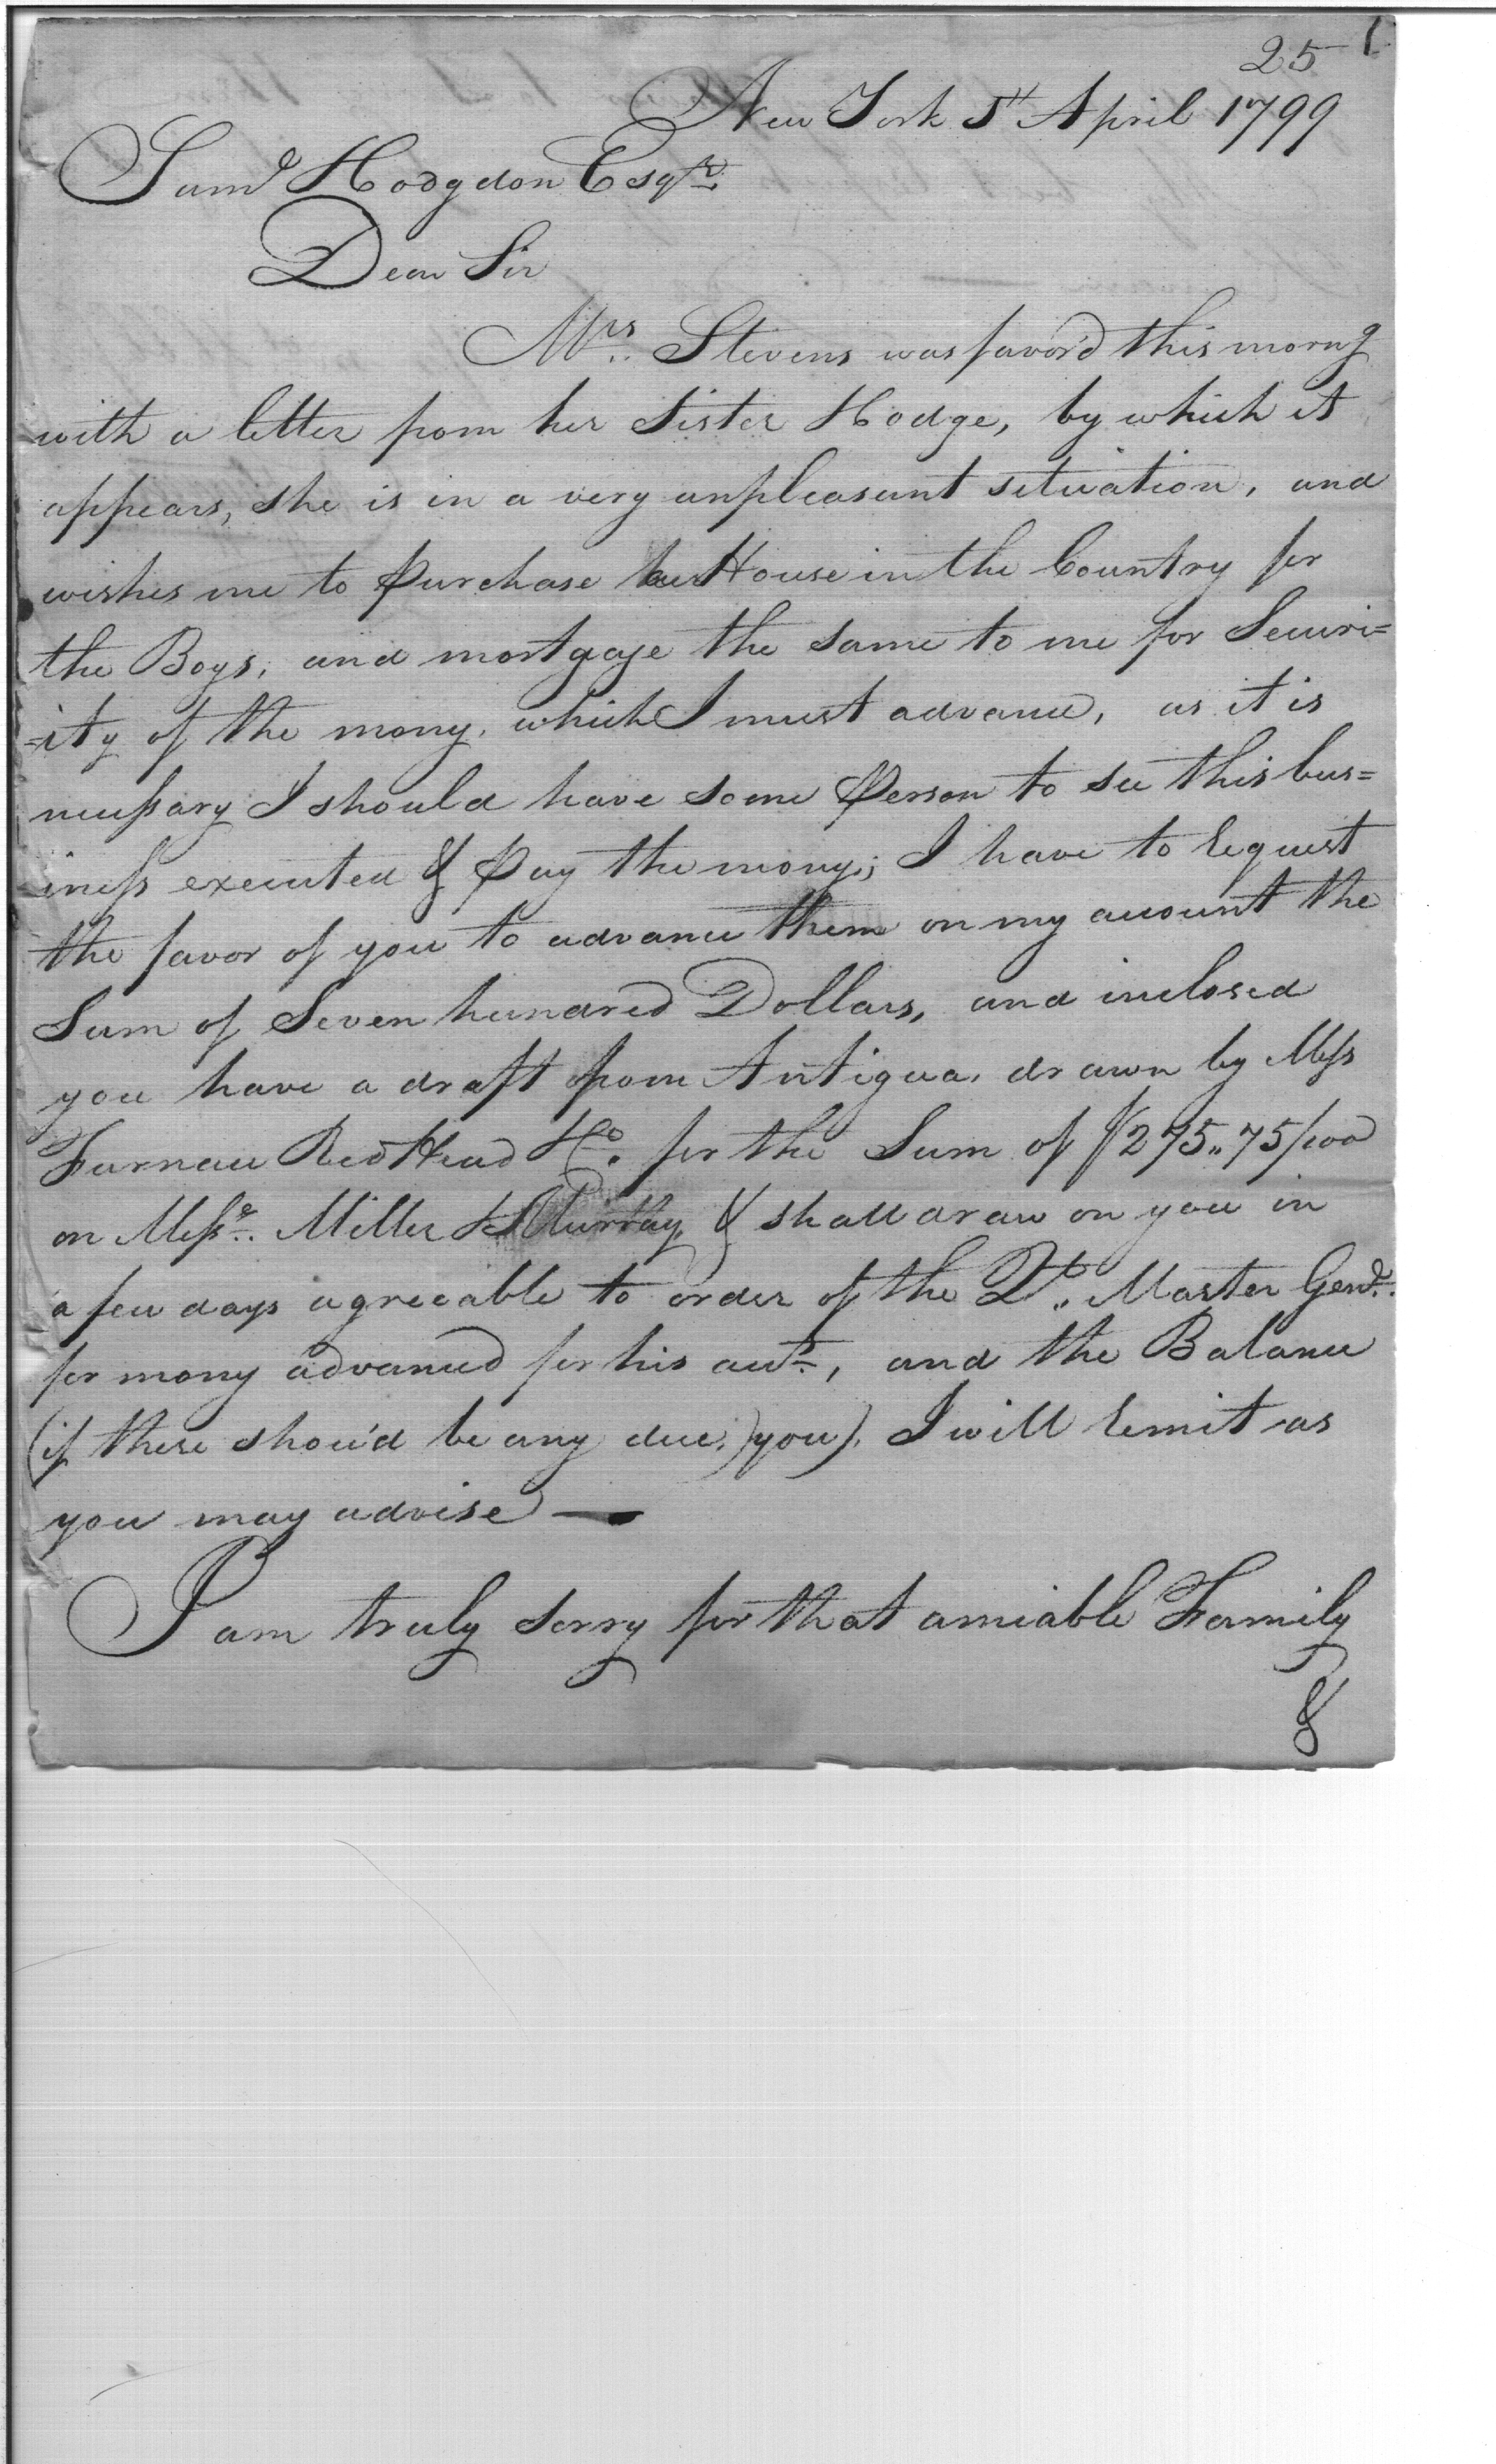 25 1
New York 5th April 1799
Saml Hodgdon Esqr.
Dear Sir
Mrs. Stevens was favor'd this morng
with a letter from her Sister Hodge, by which it
appears, she is in a very unpleasant situation, and
wishes me to Purchase her House in the Country for
the Boys, and mortgage the same to me for Securi=
=ity of the mony, which I must advance, as it is
necessary I should have some Person to see this bus=
=iness executed & Pay the mony; I have to request
the favor of you to advance them on my account the
Sum of Seven hundred Dollars, and inclosed
you have a draft from Antigua, drawn by Mess
Furnace RedHead & Co. for the Sum of $275..75/100
on Messrs. Miller & Murray, & shall draw on you in
a few days agreeable to order of the Qr. Master Genl.
for mony advanced for his acct., and the Balance
(if there shou'd be any due,) you). I will remit as
you may advise —
I am truly sorry for that amiable Family
&